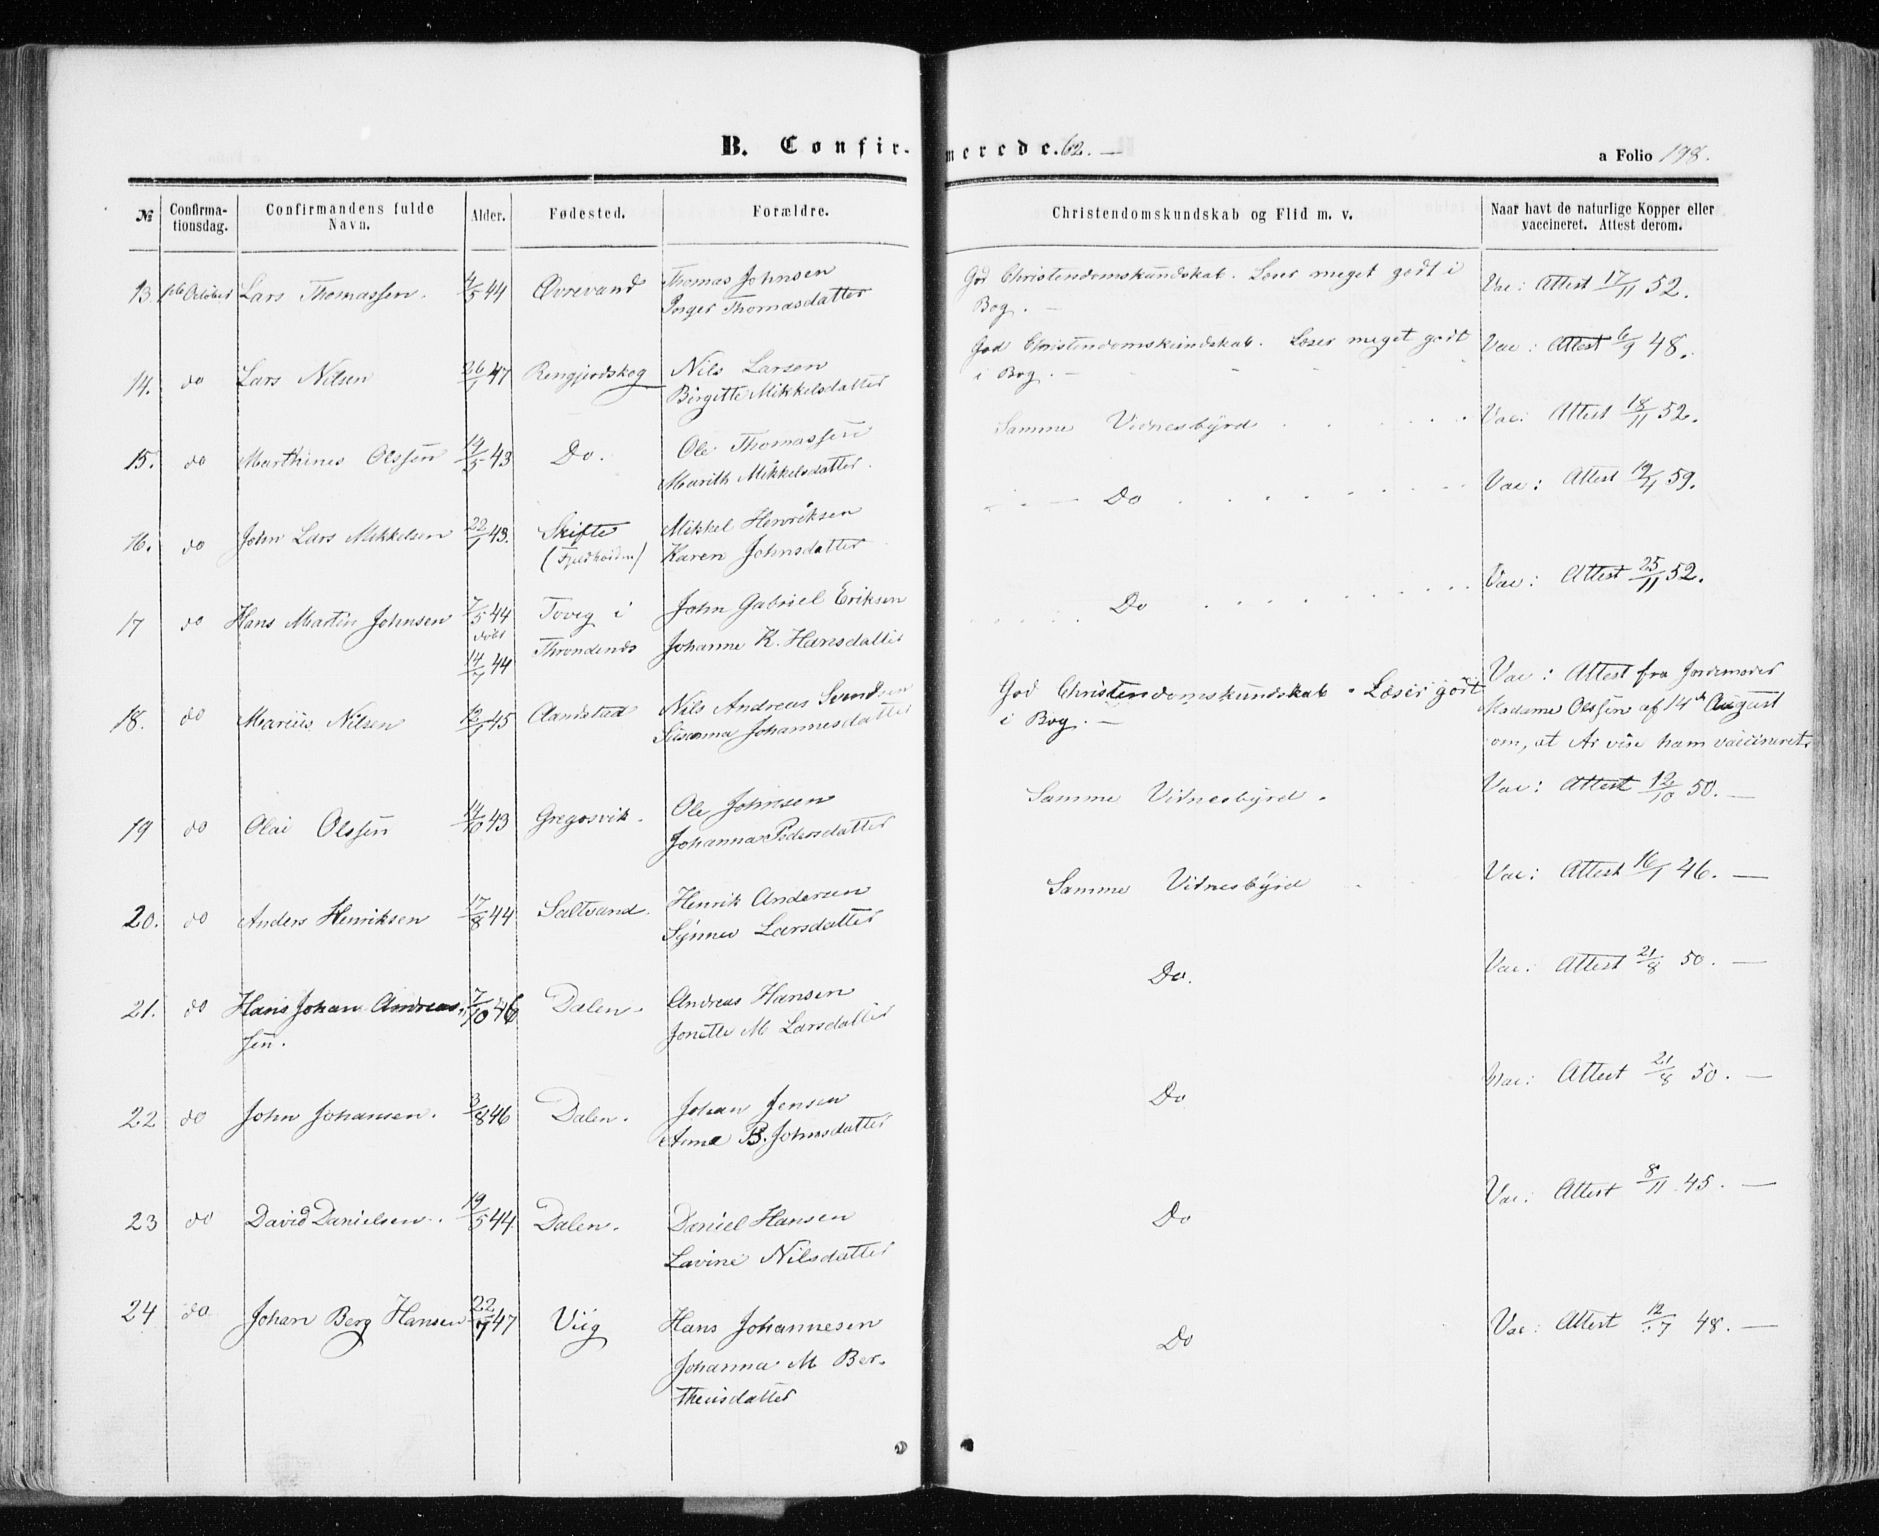 B. Confirmerede. 62. —
a Folio 198.
№ Confirma-tionsdag. Confirmandens fulde Navn. Alder. Fødested. Forældre. Christendomskundskab og Flid m. v. Naar havt de naturlige Kopper eller vaccineret. Attest derom.
13. 1ste October Lars Thomassen. 4/5 44 Øvrevand Thomas Johnsen God Christendomskundskab. Læser meget godt i Vac: Attest 17/11 52.
Inger Thomasdatter Bog. —
14. do Lars Nilsen 26/1 47 Rengjordskog Nils Larsen God Christendomskundskab. Læser meget godt Vac: Attest 6/9 48.
Birgitte Mikkelsdatter i Bog. —
15. do Marthines Olssen 19/5 43 Do. Ole Thomassen Samme Vidnesbyrd Vac: Attest 18/11 52.
Marith Mikkelsdatter.
16. do John Lars Mikkelsen 22/1 43. Skifte Mikkel Henriksen Do Vac: Attest 19/4 59.
(Fjeldheiden) Karen Johnsdatter
17 do Hans Martin Johnsen 7/5 44 Tveg i John Gabriel Eriksen Do Vac: Attest 25/11 52.
døbt 14/7 44 Throndenes Johanne K. Hansdatter
18. do Marius Nilsen 12/1 45 Aandstad Nils Andreas Svendsen God Christendomskundskab. Læser godt Vac: Attest fra Jordmoder
Susanna Johannesdatter i Bog. — Madame Olssen af 14de August
om, at Ar vise ham vaccineret.
19 do Olai Olssen 14/10 43 Gregosvik. Ole Johnsen Samme Vidnesbyrd. Vac: Attest 12/10 50. —
Johanna Pedersdatter
20. do Anders Henriksen 17/8 44 Saltvand. Henrik Andersen Samme Vidnesbyrd Vac: Attest 16/1 46. —
Synnev Larsdatter
21. do Hans Johan Andreas- 7/10 46 Dalen. Andreas Hansen Do. Vac: Attest 21/8 50. —
sen. Jonette M Larsdatter
22 do John Johansen. 3/8 46 Dalen. Johan Jensen Do Vac: Attest 21/8 50. —
Anne B. Johnsdatter
23 do David Danielsen. 19/5 44 Dalen. Daniel Hansen Do Vac: Attest 8/11 45. —
Lavine Nilsdatter
24 do Johan Berg Hansen 22/7 47 Viig Hans Johannesen Do Vac: Attest 12/7 48. —
Johanna M Ber-
theusdatter